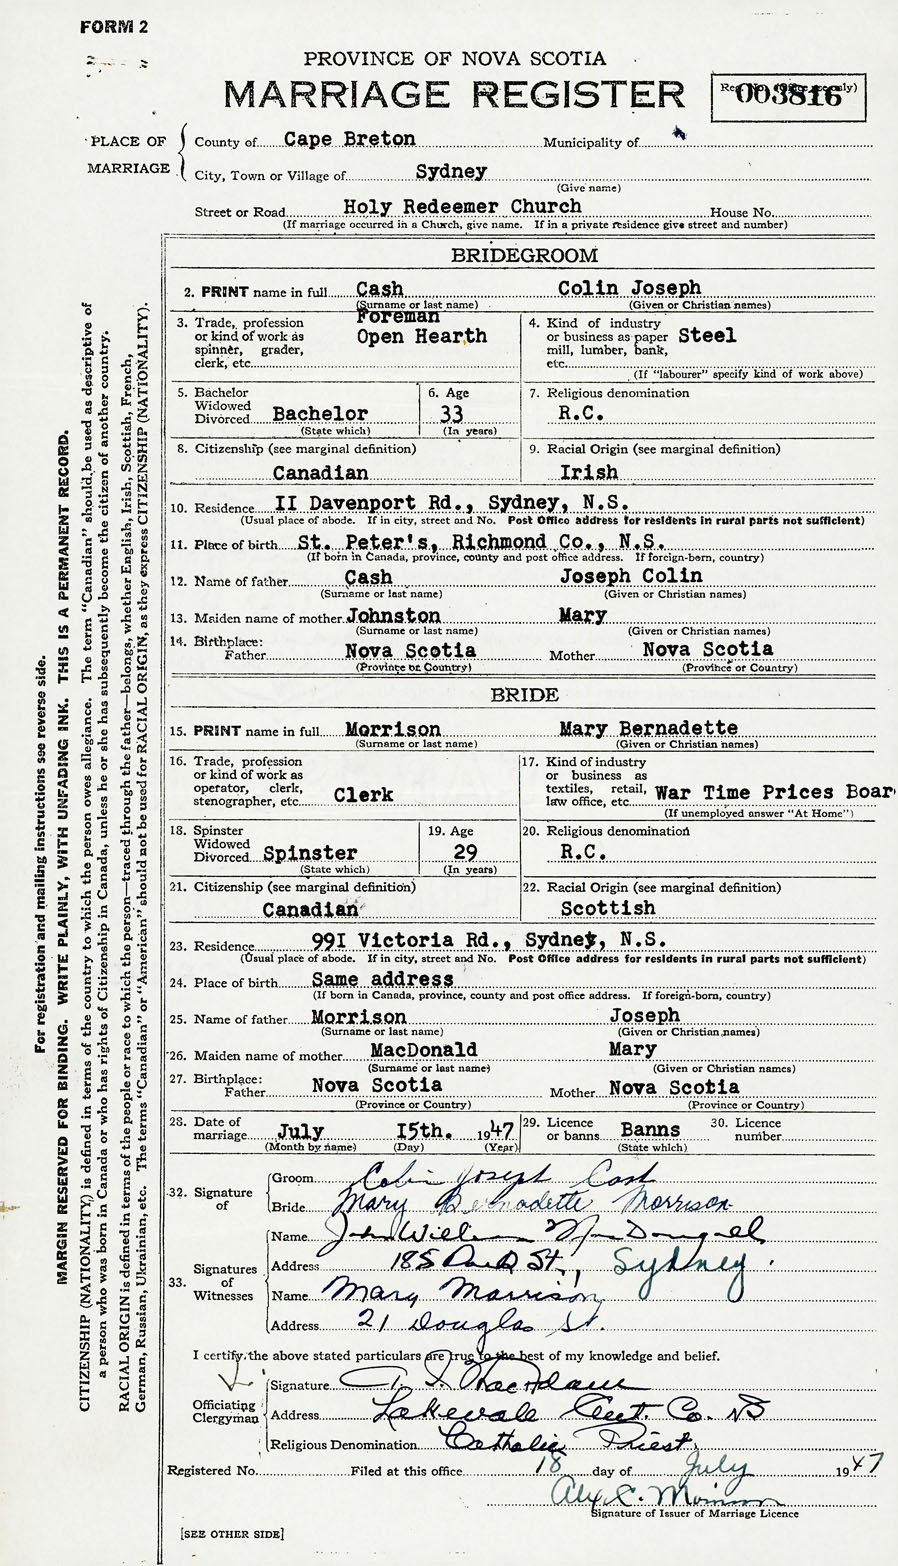 FORM 2
PROVINCE OF NOVA SCOTIA
MARRIAGE REGISTER
Reg. No. (Office use only)
003816
PLACE OF MARRIAGE
County of Cape Breton Municipality of
City, Town or Village of Sydney
(Give name)
Street or Road Holy Redeemer Church House No.
(If marriage occurred in a Church, give name. If in a private residence give street and number)
BRIDEGROOM
2. PRINT name in full Cash Colin Joseph
(Surname or last name) (Given or Christian names)
3. Trade, profession or kind of work as spinner, grader, clerk, etc. Foreman Open Hearth
4. Kind of industry or business as paper mill, lumber, bank, etc. Steel
(If "labourer" specify kind of work above)
5. Bachelor Widowed Divorced Bachelor
(State which)
6. Age 33
(In years)
7. Religious denomination R.C.
8. Citizenship (see marginal definition) Canadian
9. Racial Origin (see marginal definition) Irish
10. Residence II Davenport Rd., Sydney, N.S.
(Usual place of abode. If in city, street and No. Post Office address for residents in rural parts not sufficient)
11. Place of birth St. Peter's, Richmond Co., N.S.
(If born in Canada, province, county and post office address. If foreign-born, country)
12. Name of father Cash Joseph Colin
(Surname or last name) (Given or Christian names)
13. Maiden name of mother Johnston Mary
(Surname or last name) (Given or Christian names)
14. Birthplace: Father Nova Scotia Mother Nova Scotia
(Province or Country) (Province or Country)
BRIDE
15. PRINT name in full Morrison Mary Bernadette
(Surname or last name) (Given or Christian names)
16. Trade, profession or kind of work as operator, clerk, stenographer, etc. Clerk
17. Kind of industry or business as textiles, retail, law office, etc. War Time Prices Boar
(If unemployed answer "At Home")
18. Spinster Widowed Divorced Spinster
(State which)
19. Age 29
(In years)
20. Religious denomination R.C.
21. Citizenship (see marginal definition) Canadian
22. Racial Origin (see marginal definition) Scottish
23. Residence 99I Victoria Rd., Sydney, N.S.
(Usual place of abode. If in city, street and No. Post Office address for residents in rural parts not sufficient)
24. Place of birth Same address
(If born in Canada, province, county and post office address. If foreign-born, country)
25. Name of father Morrison Joseph
(Surname or last name) (Given or Christian names)
26. Maiden name of mother MacDonald Mary
(Surname or last name) (Given or Christian names)
27. Birthplace: Father Nova Scotia Mother Nova Scotia
(Province or Country) (Province or Country)
28. Date of marriage July I5th. 1947
(Month by name) (Day) (Year)
29. Licence or banns Banns
(State which)
30. Licence number
32. Signature of
Groom Colin Joseph Cash
Bride Mary Bernadette Morrison
33. Signatures of Witnesses
Name John William MacDougall
Address 185 St., Sydney.
Name Mary Morrison
Address 21 Douglas St.
I certify the above stated particulars are true to the best of my knowledge and belief.
Officiating Clergyman
Signature MacAdam
Address Lakevale Ant. Co. NS
Religious Denomination Catholic Priest
Registered No. Filed at this office 18 day of July 1947
Alex C. Morrison
Signature of Issuer of Marriage Licence
[SEE OTHER SIDE]
For registration and mailing instructions see reverse side.
MARGIN RESERVED FOR BINDING. WRITE PLAINLY, WITH UNFADING INK. THIS IS A PERMANENT RECORD.
CITIZENSHIP (NATIONALITY) is defined in terms of the country to which the person owes allegiance. The term "Canadian" should be used as descriptive of
a person who was born in Canada or who has rights of Citizenship in Canada, unless he or she has subsequently become the citizen of another country.
RACIAL ORIGIN is defined in terms of the people or race to which the person—traced through the father—belongs, whether English, Irish, Scottish, French,
German, Russian, Ukrainian, etc. The terms "Canadian" or "American" should not be used for RACIAL ORIGIN, as they express CITIZENSHIP (NATIONALITY).